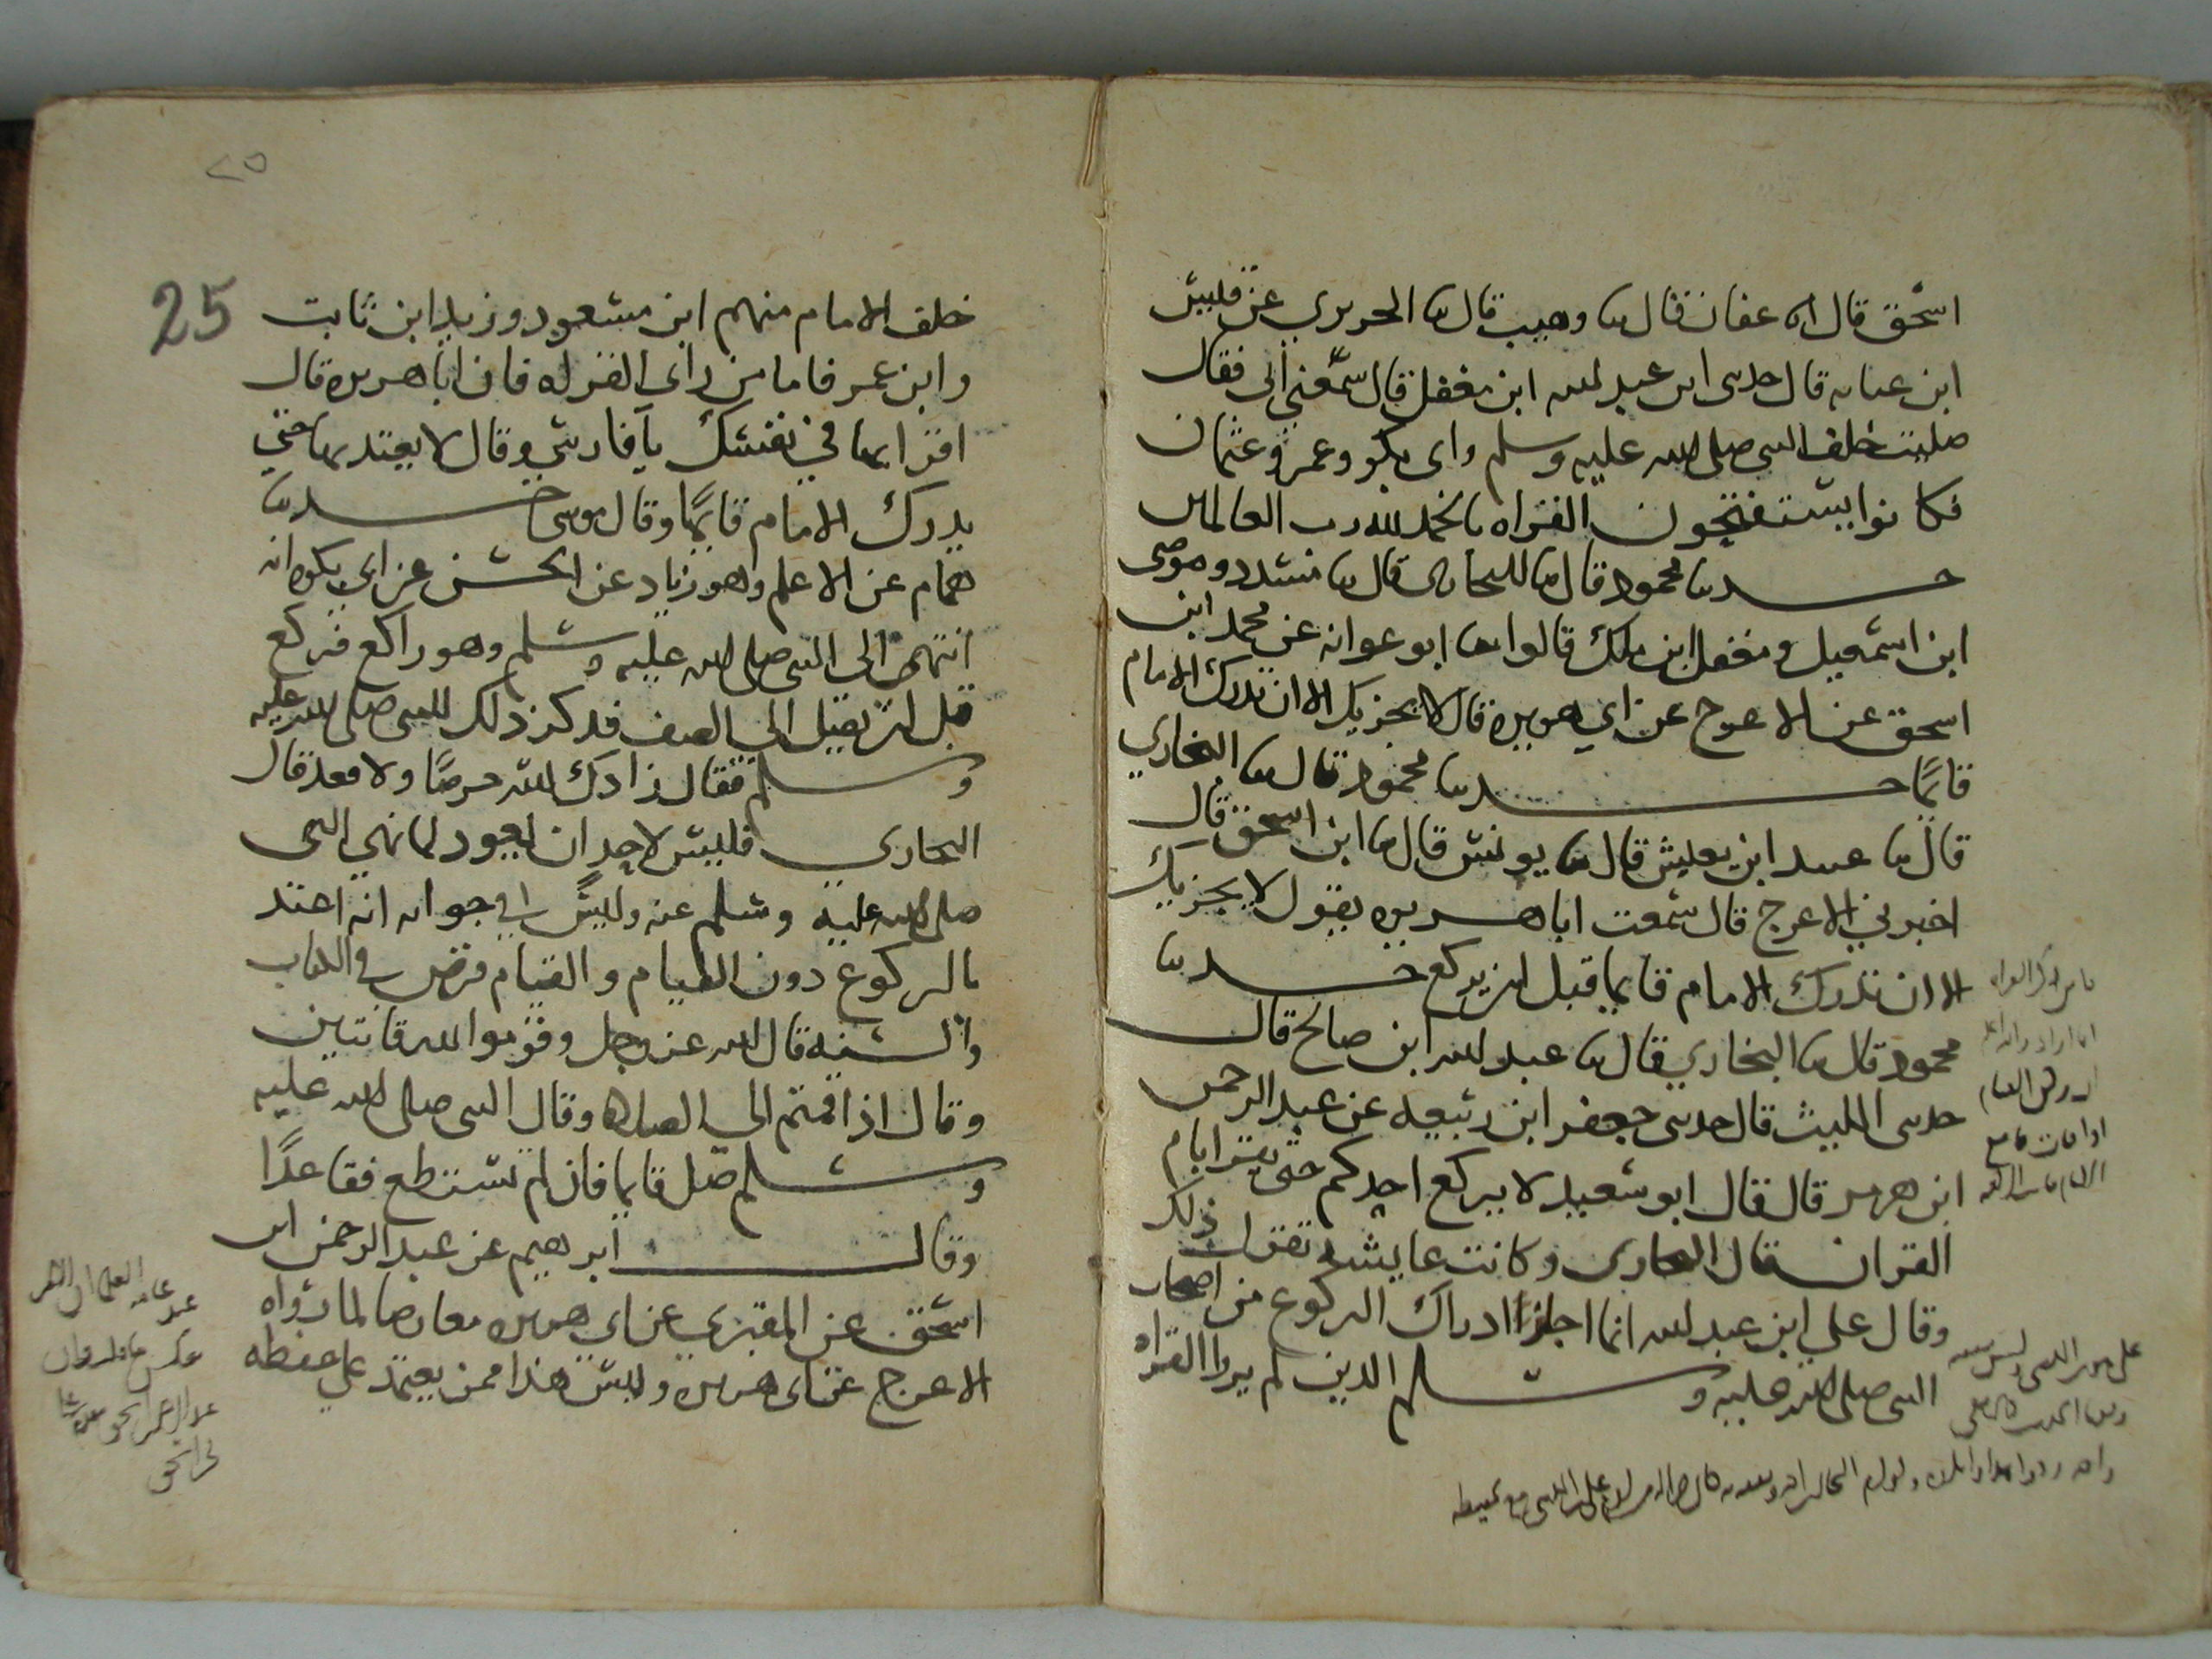 اسحق قال ثنا عفان قال ثنا وهيب قال ثنا الجريري عن قليس
ابن عبايه قال حدثنى ابن عبد الله ابن مغفل قال سمعني ابى فقال
صليت خلف النبى صلى الله عليه وسلم وابى بكر وعمر وعثمان
فكانوا يستفتحون القراه بالحمد لله رب العالمين
حدثنا محمود قال ثنا البخارى قال ثنا مسدد وموسى
ابن اسمعيل ومعقل ابن ملك قالوا ثنا ابو عوانه عن محمد ابن
اسحق عن الاعرج عن ابي هريره قال لا يجزيك الا ان تدرك الامام
قايما حدثنا محمود قال ثنا البخاري
قال ثنا عبيد ابن يعيش قال ثنا يونس قال ثنا ابن اسحق قال
اخبرني الاعرج قال سمعت ابا هريره يقول لا يجزيك
الا ان تدرك الامام قايما قبل ان يركع حدثنا
محمود قال ثنا البخاري قال ثنا عبد الله ابن صالح قال
حدثنى الليث قال حدثنى جعفر ابن ربيعه عن عبد الرحمن
ابن هرمز قال قال ابو سعيد لا يركع احدكم حتى يقرا بام
القران قال البخارى وكانت عايشه تقول ذلك
وقال علي ابن عبد الله انما اجاز ادراك الركوع من اصحاب
النبى صلى الله عليه وسلم الذين لم يروا القراه
٢٥
25
خلف الامام منهم ابن مسعود وزيد ابن ثابت
وابن عمر فاما من راى القراه فان ابا هريره قال
اقرا بها في نفسك يا فارسي وقال لا يعتد بها حتي
يدرك الامام قايما وقال موسى حدثنا
همام عن الاعلم وهو زياد عن الحسن عن ابي بكره انه
انتهى الى النبى صلى الله عليه وسلم وهو راكع فركع
قبل ان يصل الي الصف فذكر ذلك للنبى صلى الله عليه
وسلم فقال زادك الله حرصا ولا تعد قال
البخارى فليس لاحد ان يعود لما نهى النبى
صلى الله عليه وسلم عنه وليس في جوابه انه اعتد
بالركوع دون القيام والقيام فرض في الكتاب
والسنه قال الله عز وجل وقوموا لله قانتين
وقال اذا قمتم الى الصلاه وقال النبى صلى الله عليه
وسلم صل قايما فان لم تستطع فقاعدا
وقال ابرهيم عن عبد الرحمن ابن
اسحق عن المقبري عن ابي هريره معارضا لما رواه
الاعرج عن ابى هريره وليس هذا ممن يعتمد علي حفظه